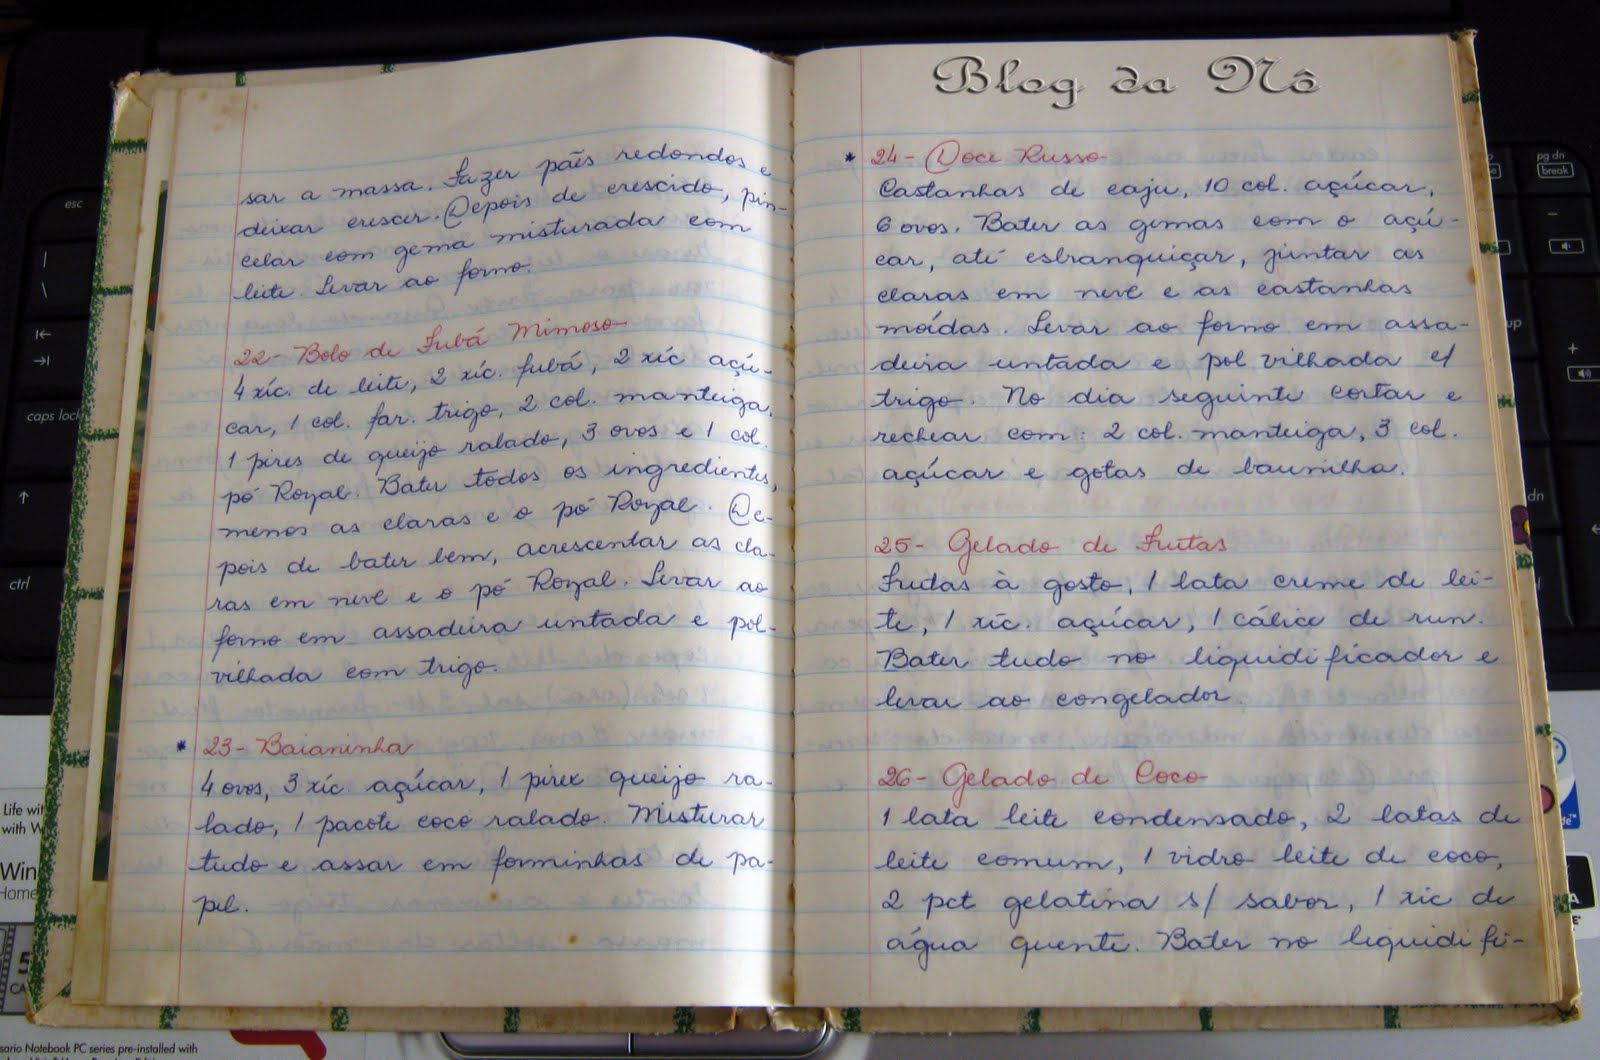 Blog da Nô
sar a massa. Fazer pães redondos e
deixar crescer. Depois de crescido, pin-
celar com gema misturada com
leite. Levar ao forno.
22- Bolo de Fubá Mimoso
4 xíc. de leite, 2 xíc. fubá, 2 xíc açú-
car, 1 col. far. trigo, 2 col. manteiga,
1 pires de queijo ralado, 3 ovos e 1 col.
pó Royal. Bater todos os ingredientes,
menos as claras e o pó Royal. De-
pois de bater bem, acrescentar as cla-
ras em neve e o pó Royal. Levar ao
forno em assadeira untada e pol-
vilhada com trigo.
* 23- Baianinha
4 ovos, 3 xíc. açúcar, 1 pirex queijo ra-
lado, 1 pacote coco ralado. Misturar
tudo e assar em forminhas de pa-
pel.
* 24- Doce Russo
Castanhas de caju, 10 col. açúcar,
6 ovos. Bater as gemas com o açú-
car, até esbranquiçar, juntar as
claras em neve e as castanhas
moídas. Levar ao forno em assa-
deira untada e polvilhada c/
trigo. No dia seguinte cortar e
rechear com: 2 col. manteiga, 3 col.
açúcar e gotas de baunilha.
25- Gelado de Frutas
Frutas à gosto, 1 lata creme de lei-
te, 1 xíc. açúcar, 1 cálice de run.
Bater tudo no liquidificador e
levar ao congelador.
26- Gelado de Coco
1 lata leite condensado, 2 latas de
leite comum, 1 vidro leite de coco,
2 pct gelatina s/ sabor, 1 xic de
água quente. Bater no liquidifi-
esc
caps lock
ctrl
pg dn
break
up
dn
Life wit
with W
Win
Home
5
CA
sario Notebook PC series pre-installed with